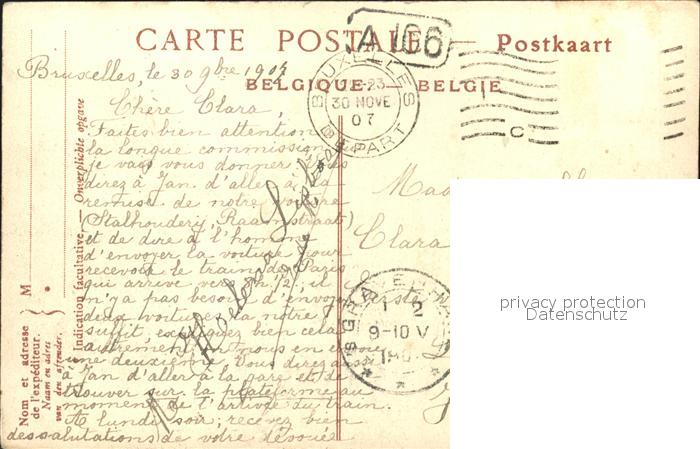 A 106
CARTE POSTALE — Postkaart
BELGIQUE — BELGIË
BRUXELLES
23
30 NOVE
07
DEPART
C
Bruxelles, le 30 9bre 1907
Chère Clara,
Faites bien attention
la longue commission
je vais vous donner. Vous
direz à Jan d'aller à la
remise de notre voiture
(Stalhouderij, Raamstraat)
et de dire à l'homme
d'envoyer la voiture pour
recevoir le train de Paris
qui arrive vers 8h 1/2, il
n'a pas besoin d'envoyer
deux voitures la notre
suffit, expliquez bien cela
autrement on nous en envoie
une deuxième. Vous direz aussi
à Jan d'aller à la gare et de
trouver sur la plateforme au
moment de l'arrivée du train.
A lundi soir; recevez bien
des salutations de votre dévouée
Clara
'S GRAVENHAGE
1 2
9-10 V
Indication facultative. — Onverplichte opgave
M
Nom et adresse
de l'expéditeur.
Naam en adres
van den afzender.
privacy protection
Datenschutz